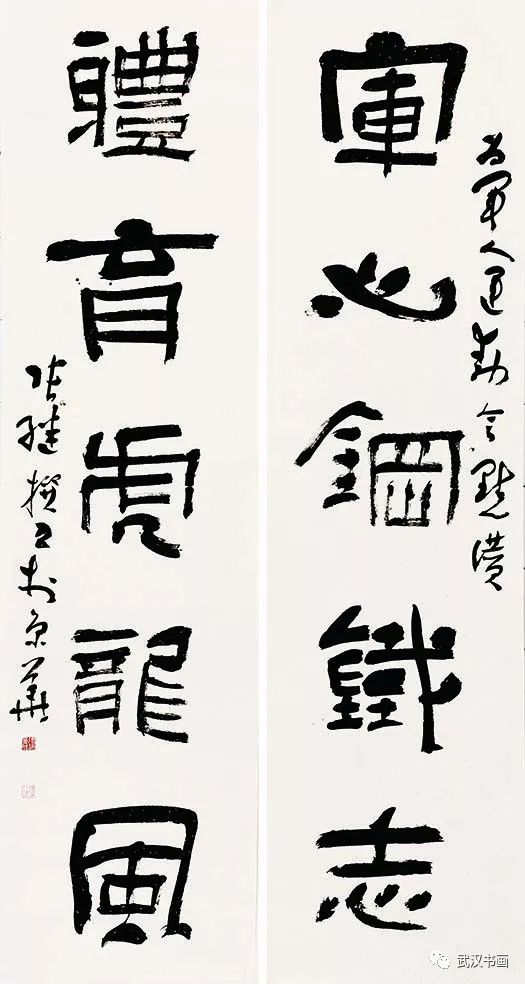 軍心鋼鐵志
為軍人運動會點讚
體育虎龍風
張繼撰書於京華
武汉书画